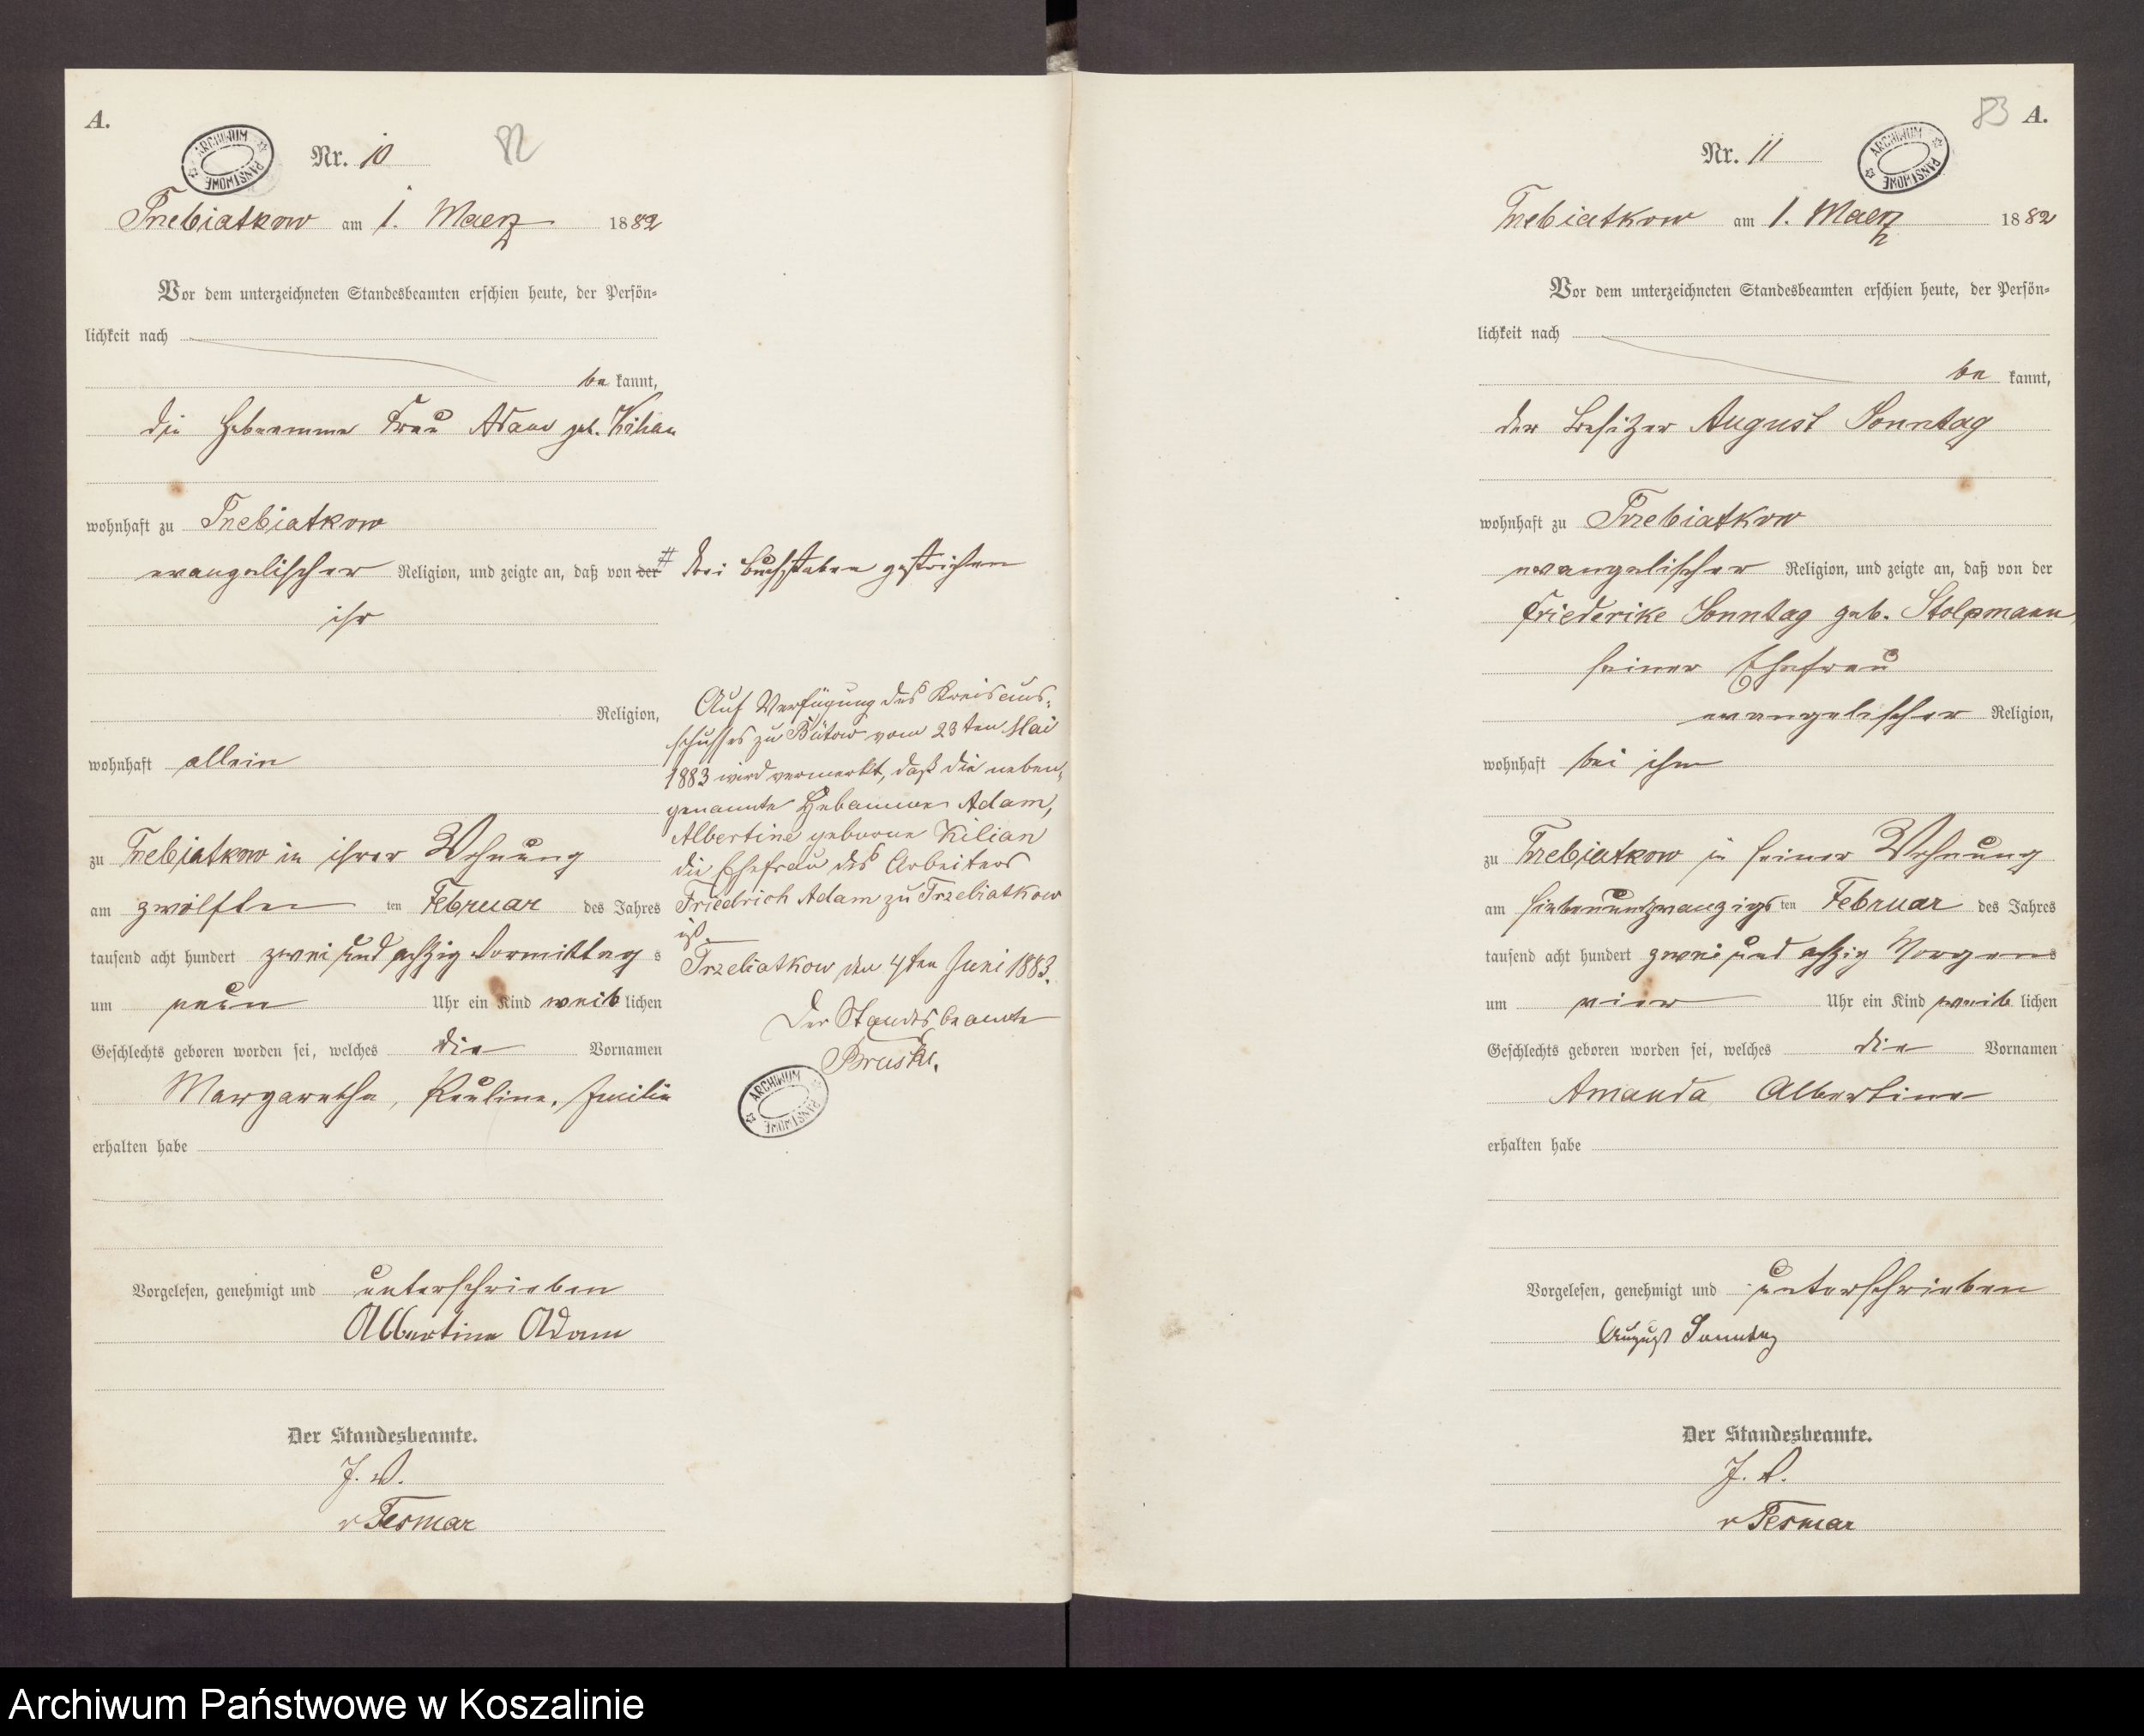 A.
ARCHIWUM PAŃSTWOWE
Nr. 10
82
Trzebiatkow am 1. Maerz 1882
Vor dem unterzeichneten Standesbeamten erschien heute, der Persön-
lichkeit nach
be kannt,
die Hebeamme Frau Adam geb. Kilian
wohnhaft zu Trzebiatkow
evangelischer Religion, und zeigte an, daß von der #
ihr
Religion,
wohnhaft allein
zu Trzebiatkow in ihrer Wohnung
am zwölften ten Februar des Jahres
tausend acht hundert zwei und achzig Vormittag s
um neun Uhr ein Kind weib lichen
Geschlechts geboren worden sei, welches die Vornamen
Margarethe, Pauline, Emilie
erhalten habe
Vorgelesen, genehmigt und unterschrieben
Albertine Adam
Der Standesbeamte.
J. V.
v Tesmar
# drei Buchstaben gestrichen
Auf Verfügung des Kreisaus-
schusses zu Bütow vom 23ten Mai
1883 wird vermerkt, daß die neben-
genannte Hebamme Adam,
Albertine geborne Kilian
die Ehefrau des Arbeiters
Friedrich Adam zu Trzebiatkow
ist.
Trzebiatkow den 4ten Juni 1883.
Der Standesbeamte
ARCHIWUM PAŃSTWOWE
83 A.
Nr. 11
ARCHIWUM PAŃSTWOWE
Trzebiatkow am 1. Maerz 1882
Vor dem unterzeichneten Standesbeamten erschien heute, der Persön-
lichkeit nach
be kannt,
der Besitzer August Sonntag
wohnhaft zu Trzebiatkow
evangelischer Religion, und zeigte an, daß von der
Friederike Sonntag geb. Stolpmann,
seiner Ehefrau
evangelischer Religion,
wohnhaft bei ihm
zu Trzebiatkow in seiner Wohnung
am siebenundzwanzigs ten Februar des Jahres
tausend acht hundert zwei und achzig Morgens
um vier Uhr ein Kind weib lichen
Geschlechts geboren worden sei, welches die Vornamen
Amanda Albertine
erhalten habe
Vorgelesen, genehmigt und unterschrieben
August Sonntag
Der Standesbeamte.
J. V.
v Tesmar
Archiwum Państwowe w Koszalinie